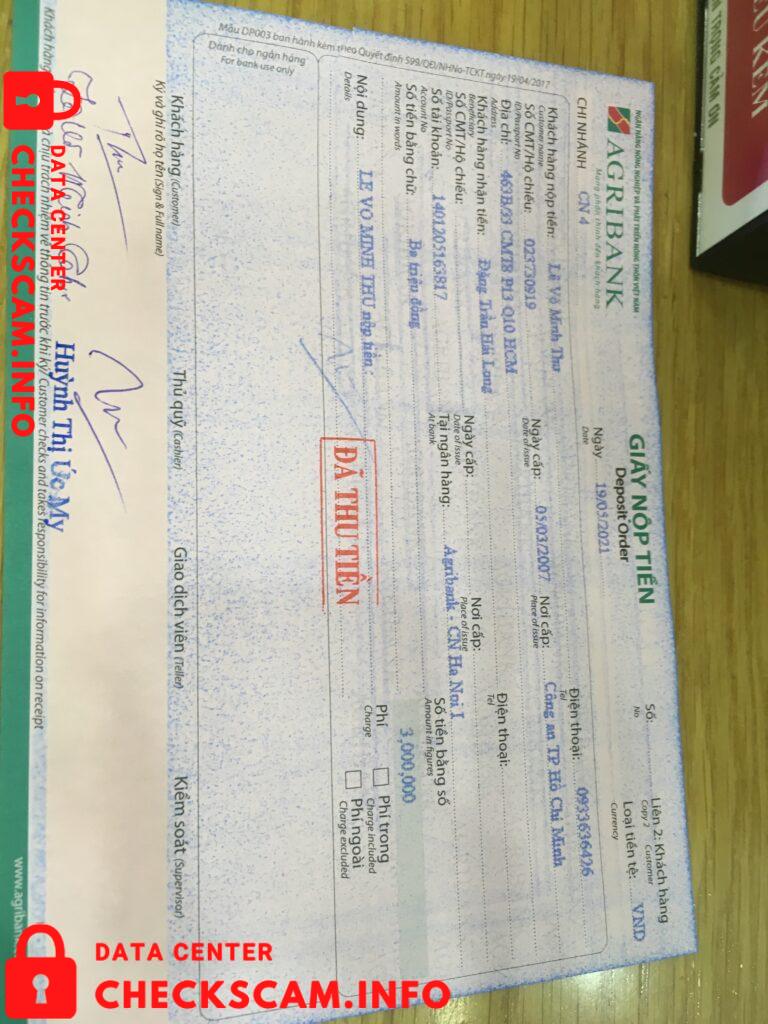 ÊU KÉM
TRONG CẢM ƠN
NGÂN HÀNG NÔNG NGHIỆP VÀ PHÁT TRIỂN NÔNG THÔN VIỆT NAM
AGRIBANK
Mang phồn thịnh đến khách hàng
CHI NHÁNH CN 4
GIẤY NỘP TIỀN
Deposit Order
Ngày 19/05/2021
Date
Số:
No
Liên 2: Khách hàng
Copy 2 Customer
Loại tiền tệ: VND
Currency
Khách hàng nộp tiền: Lê Võ Minh Thư
Customer name
Điện thoại: 0933636426
Tel
Số CMT/Hộ chiếu: 023730919
ID/Passport No
Ngày cấp: 05/03/2007
Date of issue
Nơi cấp: Công an TP Hồ Chí Minh
Place of issue
Địa chỉ: 463B/33 CMT8 P13 Q10 HCM
Address
Khách hàng nhận tiền: Đặng Trần Hải Long
Beneficiary
Điện thoại:
Tel
Số CMT/Hộ chiếu:
ID/Passport No
Ngày cấp:
Date of issue
Nơi cấp:
Place of issue
Số tài khoản: 1401205163817
Account No
Tại ngân hàng: Agribank - CN Ha Noi I
At bank
Số tiền bằng chữ: Ba triệu đồng
Amount in words
Số tiền bằng số
Amount in figures
3,000,000
Nội dung: LE VO MINH THU nộp tiền ;
Details
ĐÃ THU TIỀN
Phí
Charge
Phí trong
Charge included
Phí ngoài
Charge excluded
Mẫu DP003 ban hành kèm theo Quyết định 599/QĐ/NHNo-TCKT ngày 19/04/2017
Dành cho ngân hàng
For bank use only
Khách hàng (Customer)
Ký và ghi rõ họ tên (Sign & Full name)
Thủ quỹ (Cashier)
Giao dịch viên (Teller)
Kiểm soát (Supervisor)
Thu
Huỳnh Thị Úc My
Khách hàng chịu trách nhiệm về thông tin trước khi ký/ Customer checks and takes responsibility for information on receipt
www.agriban
DATA CENTER
CHECKSCAM.INFO
DATA CENTER
CHECKSCAM.INFO